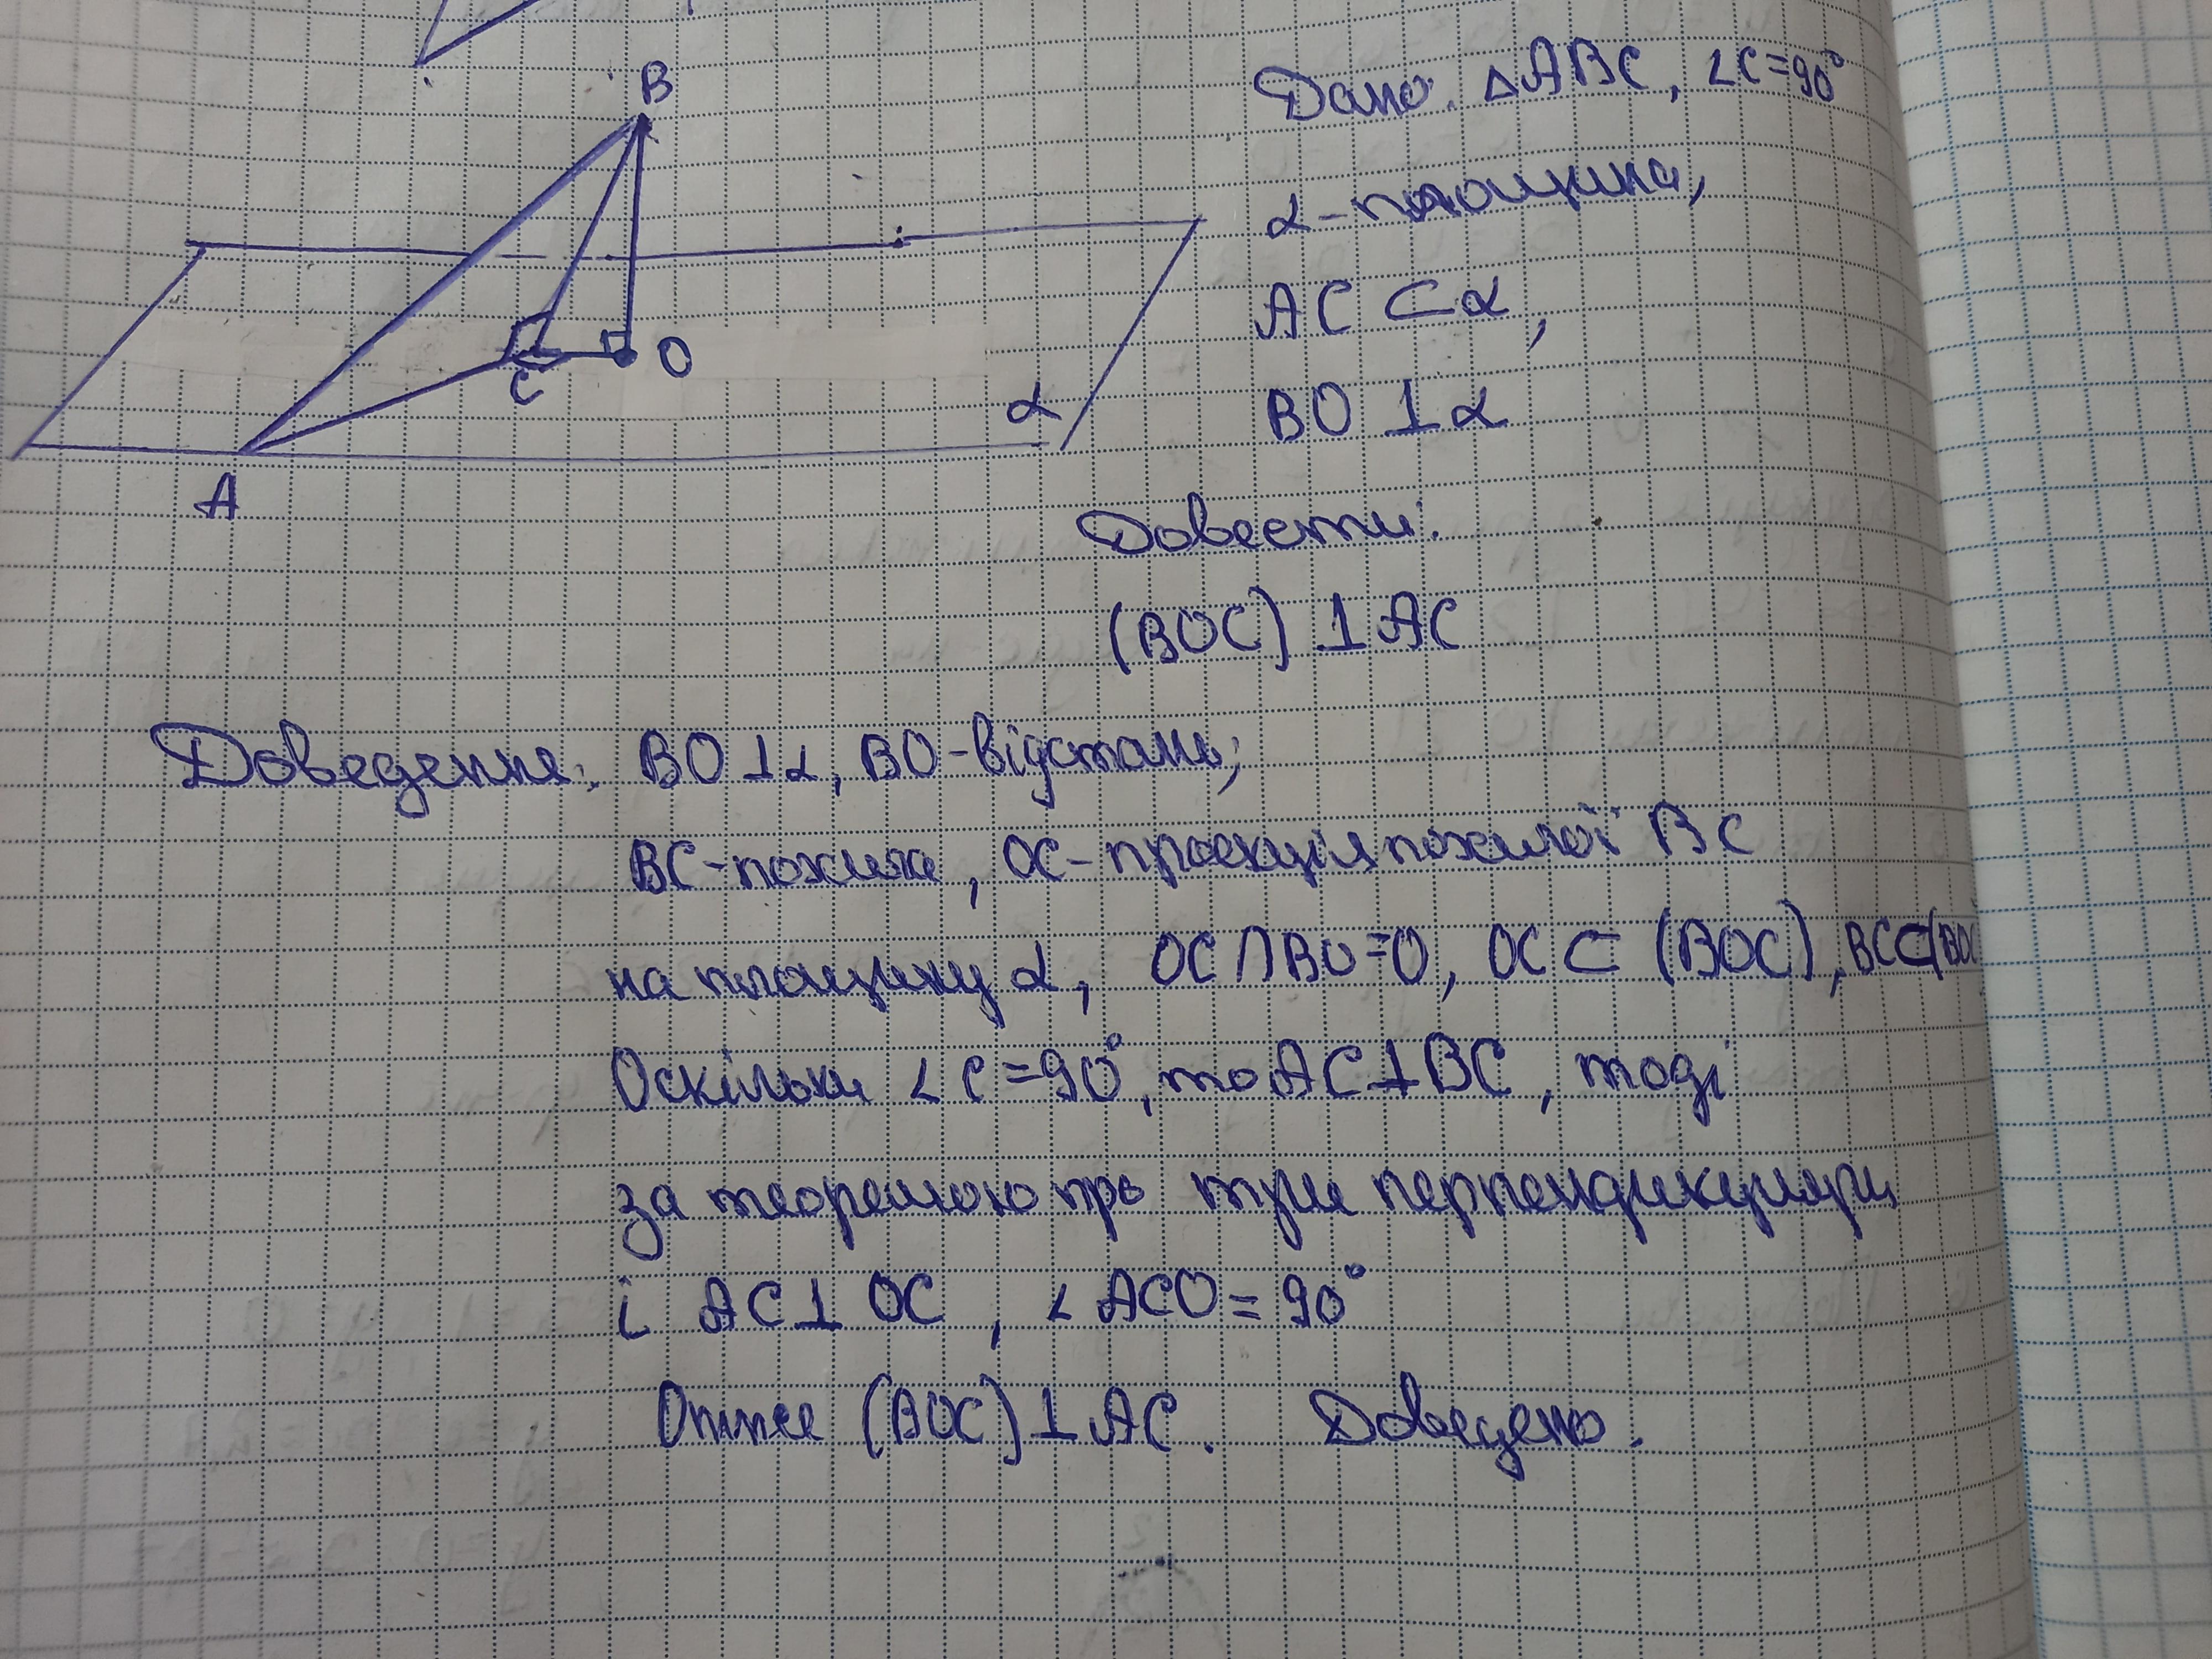 B
Дано: △ABC, ∠C=90°
α-площина,
AC ⊂ α,
C
O
α
BO ⊥ α
A
Довести:
(BOC) ⊥ AC
Доведення: BO ⊥ α, BO-відстань;
BC-похила, OC-проекція похилої BC
на площину α, OC∩BO=O, OC ⊂ (BOC), BC⊂(BOC
Оскільки ∠C=90°, то AC⊥BC, тоді
за теоремою про три перпендикуляри
і AC⊥ OC, ∠ACO=90°
Отже (BOC)⊥AC. Доведено.